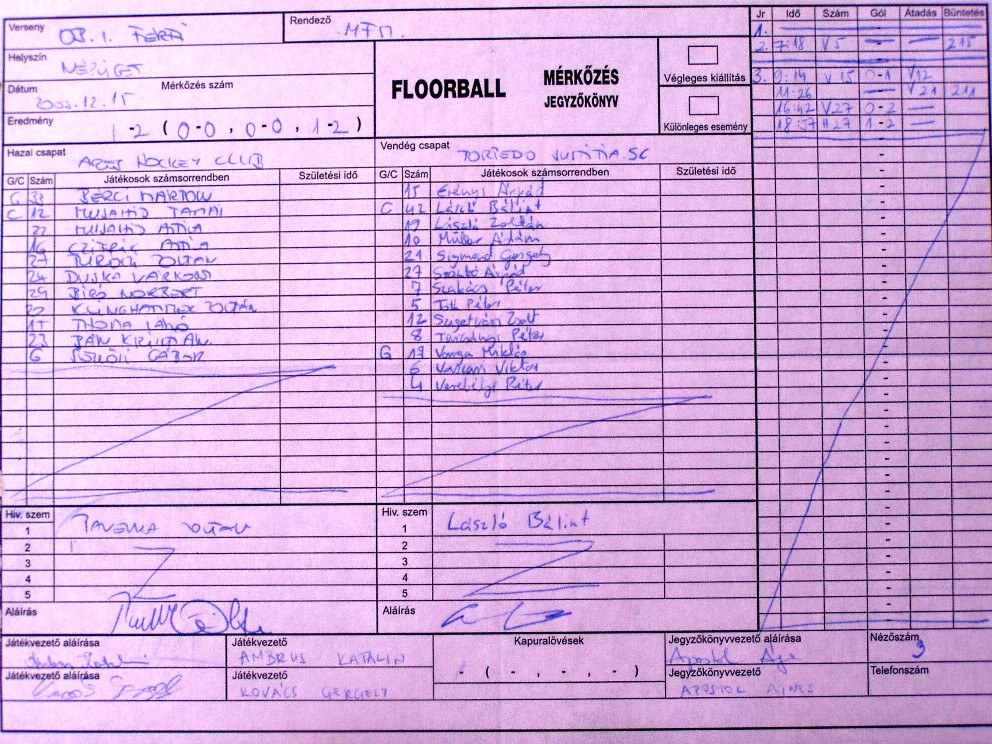 Verseny OB. I. FÉRFI
Rendező MFSZ.
Helyszín NÉPLIGET
Dátum 2002.12.15
Mérkőzés szám
Eredmény 1-2 (0-0, 0-0, 1-2)
FLOORBALL MÉRKŐZÉS JEGYZŐKÖNYV
Végleges kiállítás
Különleges esemény
Hazai csapat HOCKEY CLUB
G/C Szám Játékosok számsorrendben Születési idő
G 33 BERCI MARTON
C 12 MUJAHID TAMAI
22 MUJAHID ATTILA
16 ATTILA
27 ZOLTÁN
24 DUJKA VÁRKONYI
29 BÍRÓ NORBERT
KLINGHAMMER ZOLTÁN
THOMA
23 BÁN KRISTIÁN
6 GÁBOR
Vendég csapat TORPEDO JUSTITIA SC
G/C Szám Játékosok számsorrendben Születési idő
15 Erényi Árpád
C 42 László Bálint
19 László Zoltán
10 Müller Ádám
21 Sigmond Gergely
27 Szántó Árpád
7 Szakács Péter
5 Tóth Péter
12 Szigetvári Zsolt
8 Turcsányi Péter
G 13 Varga Miklós
6 Viktor
4 Verebélyi Péter
Hiv. szem
1 TAVERNA ZOLTÁN
2
3
4
5
Aláírás
Hiv. szem
1 László Bálint
2
3
4
5
Aláírás
Jr Idő Szám Gól Átadás Büntetés
1. —
2. 7:18 V5 — — 215
3. 9:14 V15 0-1 V12
11:26 — V21 211
16:42 V27 0-2 —
18:57 H27 1-2 —
Játékvezető aláírása
Játékvezető AMBRUS KATALIN
Játékvezető aláírása
Játékvezető KOVÁCS GERGELY
Kapuralövések
- ( - , - , - )
Jegyzőkönyvvezető aláírása Apostol
Jegyzőkönyvvezető APOSTOL ÁGNES
Nézőszám 3
Telefonszám